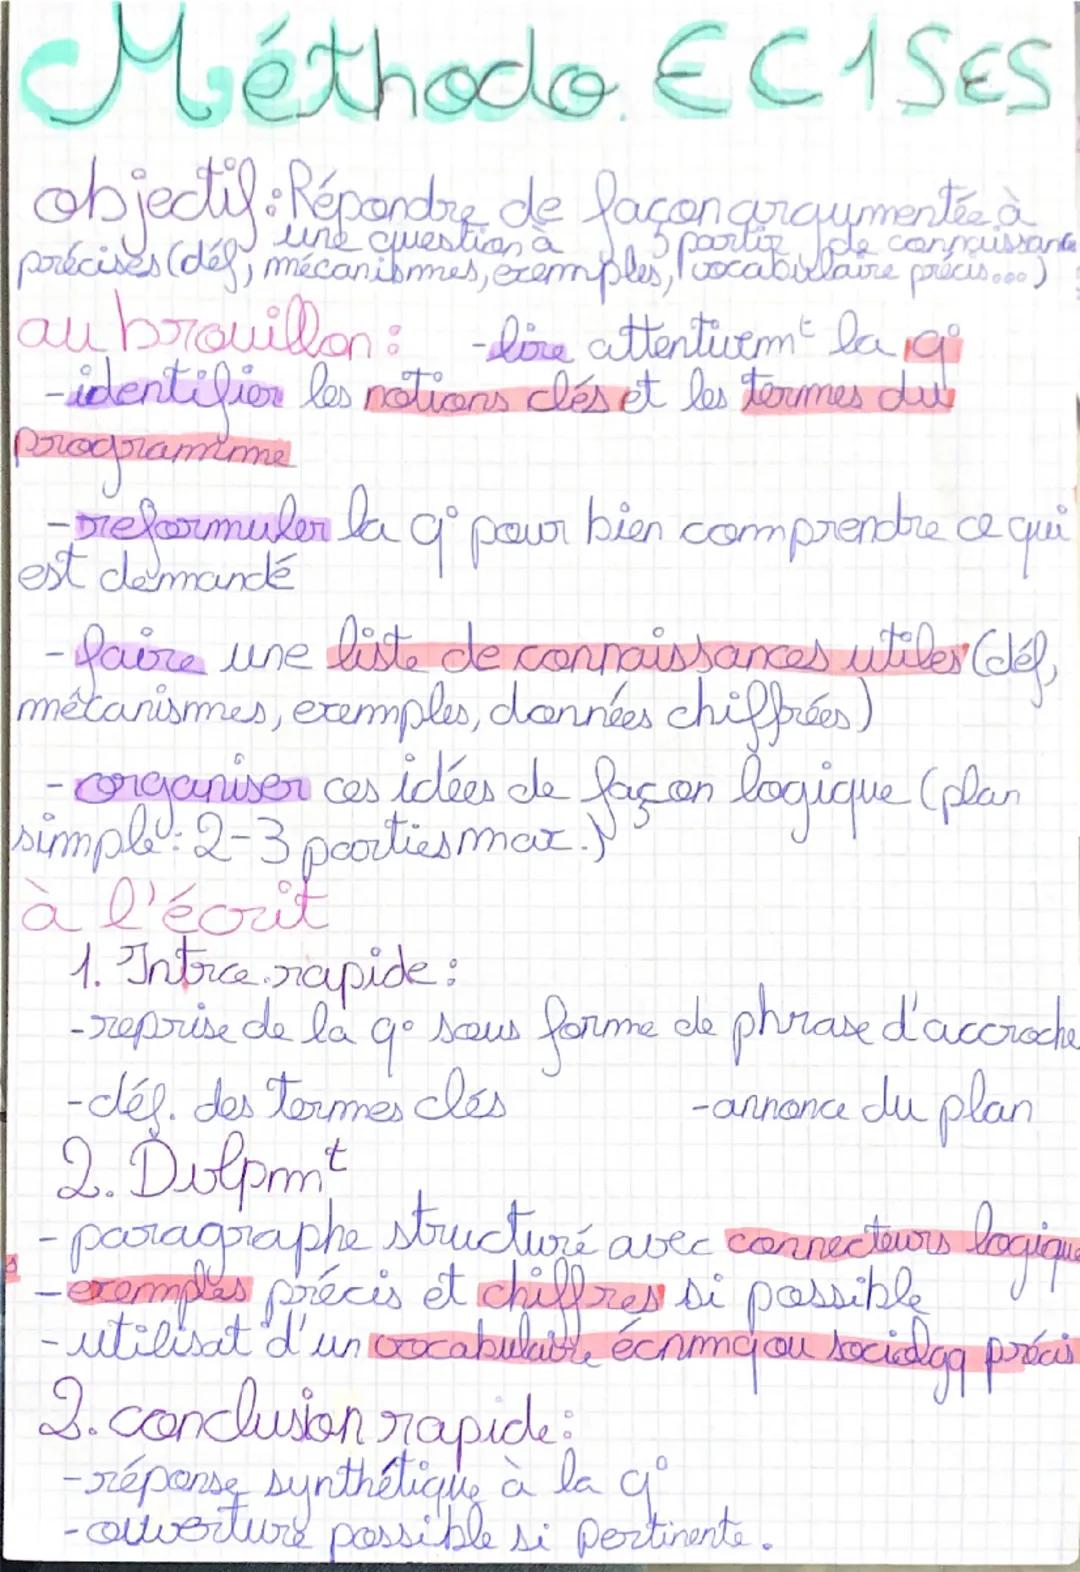 Méthodo. EC1 SES
objectif : Répondre de façon argumentée à
une question à partir de connaissance
précises (déf, mécanismes, exemples, vocabulaire précis...)
au brouillon : - lire attentivemt la q°
- identifier les notions clés et les termes du
programme
- reformuler la q° pour bien comprendre ce qui
est demandé
- faire une liste de connaissances utiles (déf,
mécanismes, exemples, données chiffrées)
- organiser ces idées de façon logique (plan
simple : 2-3 parties max.)
à l'écrit
1. Intro. rapide :
- reprise de la q° sous forme de phrase d'accroche
- déf. des termes clés - annonce du plan
2. Dvlpmt
- paragraphe structuré avec connecteurs logique
s
- exemples précis et chiffres si possible
- utilisat° d'un vocabulaire écnmq ou sociolgq précis
3. conclusion rapide :
- réponse synthétique à la q°
- ouverture possible si pertinente.